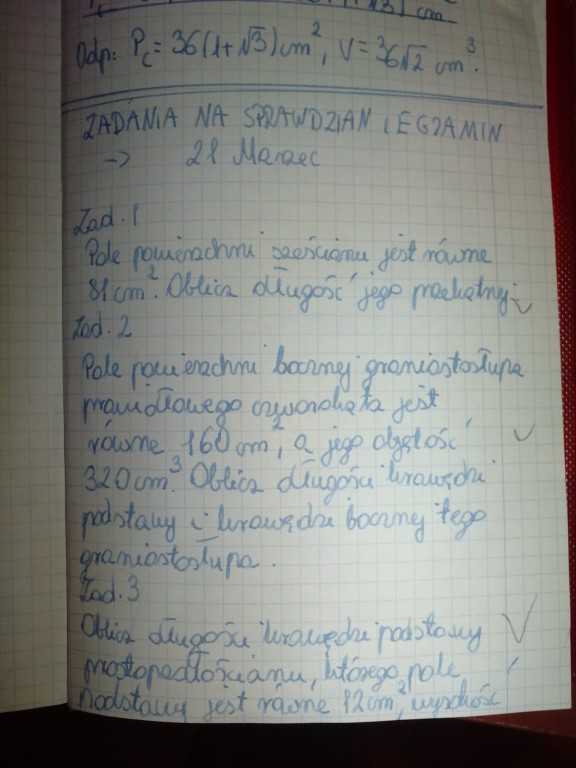 √3) cm
Odp: Pc = 36(1+√3) cm², V = 36√2 cm³.
ZADANIA NA SPRAWDZIAN I EGZAMIN
→ 21 Marzec
Zad. 1
Pole powierzchni sześcianu jest równe
81 cm². Oblicz długość jego przekątnej.
Zad. 2
Pole powierzchni bocznej graniastosłupa
prawidłowego czworokąta jest
równe 160 cm², a jego objętość
320 cm³. Oblicz długości krawędzi
podstawy i krawędzi bocznej tego
graniastosłupa.
Zad. 3
Oblicz długości krawędzi podstawy
prostopadłościanu, którego pole
podstawy jest równe 12 cm², wysokość